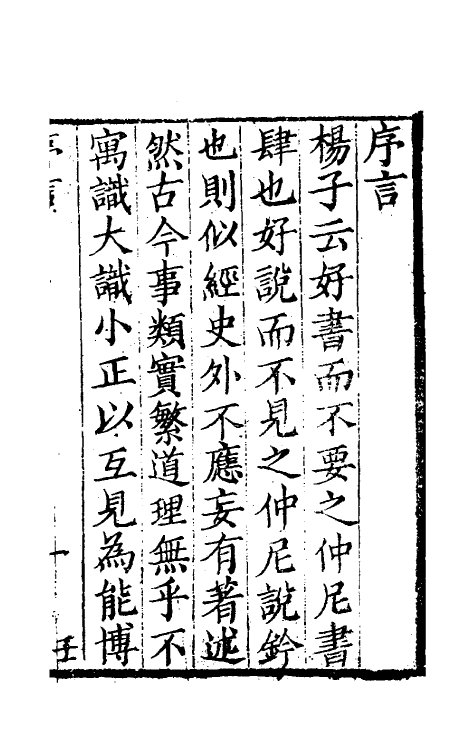 序言
楊子云好書而不要之仲尼書
肆也好說而不見之仲尼說鈐
也則似經史外不應妄有著述
然古今事類實繁道理無乎不
寓識大識小正以互見為能博
序言
一